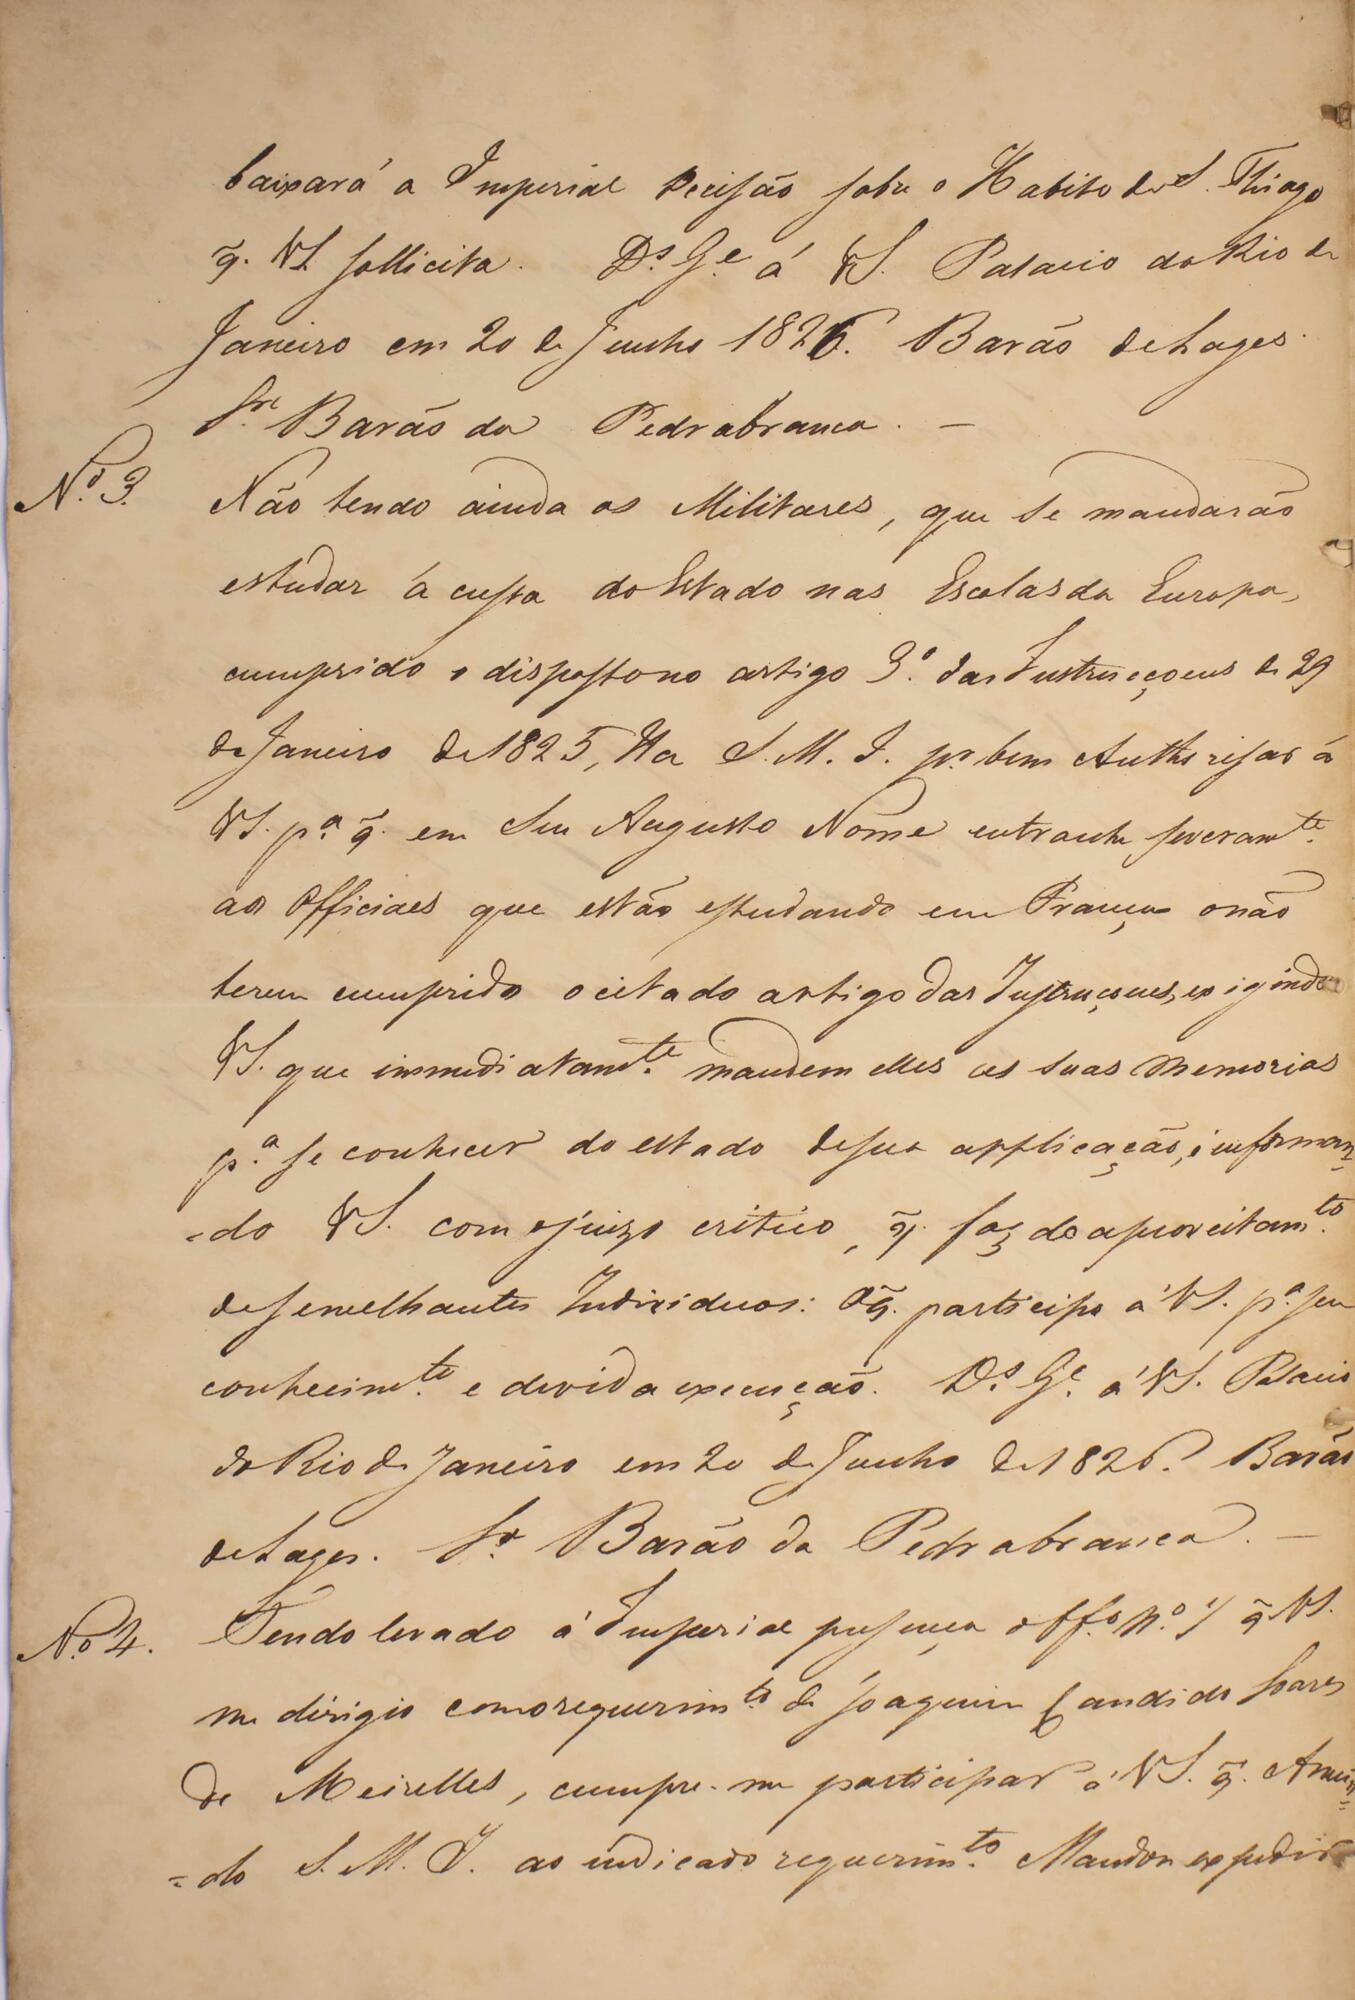 baixará a Imperial Decisão sobre o Habito de S. Thiago
q̃. VS. sollicita. Ds. Ge. á VS. Palacio do Rio de
Janeiro em 20 de Junho 1826. Barão de Lages.
Snr. Barão da Pedrabranca. —
No. 3. Não tendo ainda os Militares, que se mandarão
estudar á custa do Estado nas Escolas da Europa,
cumprido o disposto no artigo 3º. das Instrucçoens de 29
de Janeiro de 1825, Ha S. M. I. pr. bem Authorisar á
VS. pª. q̃. em Seu Augusto Nome estranhe severamte.
aos Officiaes que estão estudando em França o não
terem cumprido o citado artigo das Instruçoens, exigindo
VS. que immediatamte. mandem elles as suas Memorias
pª. se conhecer do estado de sua applicação, informan-
-do VS. com o juizo critico, q̃. faz do aproveitamto.
de semelhantes Individuos: O q̃. participo á VS. pª. seu
conhecimto. e devida execução. Ds. Ge. á VS. Palacio
do Rio de Janeiro em 20 de Junho de 1826. Barão
de Lages. Sr. Barão da Pedrabranca. —
No. 4. Tendo levado á Imperial presença o Offº. Nº. 7 q̃ VS.
me dirigio com o requerimto. de Joaquim Candido Soares
de Meirelles, cumpre-me participar á VS. q̃. Annuin=
=do S. M. I. ao indicado requerimto. Mandou expedir